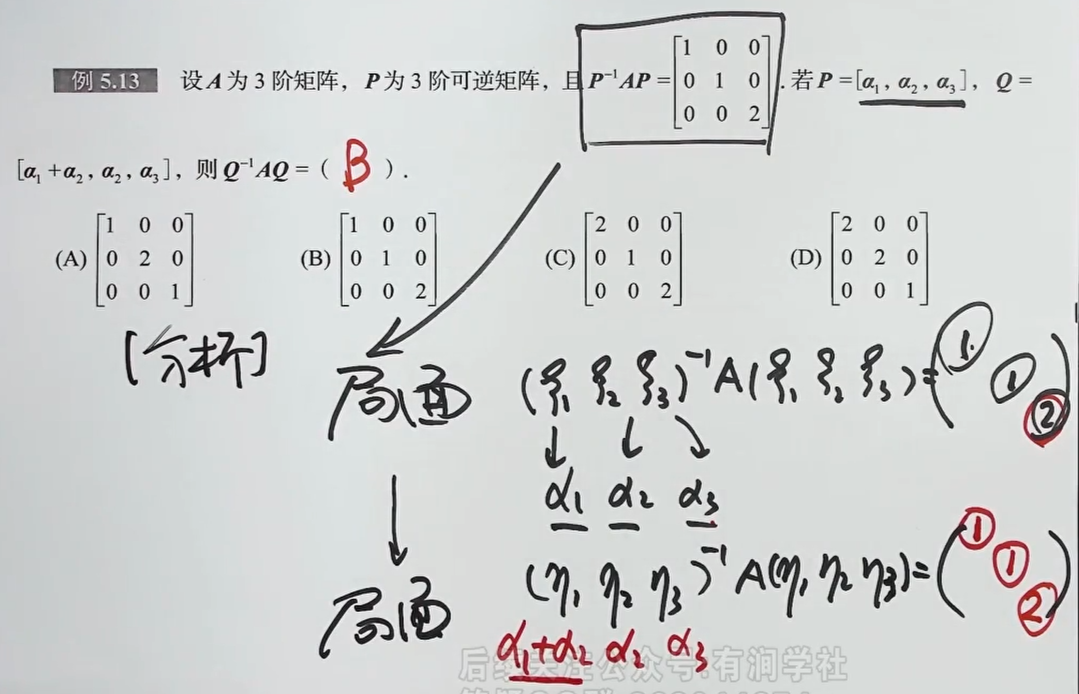 例 5.13 设 A 为 3 阶矩阵，P 为 3 阶可逆矩阵，且 P⁻¹AP = [1 0 0; 0 1 0; 0 0 2]. 若 P = [α₁, α₂, α₃], Q =
[α₁ + α₂, α₂, α₃], 则 Q⁻¹AQ = ( B ).
(A) [1 0 0; 0 2 0; 0 0 1] (B) [1 0 0; 0 1 0; 0 0 2] (C) [2 0 0; 0 1 0; 0 0 2] (D) [2 0 0; 0 2 0; 0 0 1]
[分析]
局面 (ξ₁ ξ₂ ξ₃)⁻¹ A (ξ₁ ξ₂ ξ₃) = (1 1 2)
↓ ↓ ↓
α₁ α₂ α₃
局面 (η₁ η₂ η₃)⁻¹ A (η₁ η₂ η₃) = (1 1 2)
α₁+α₂ α₂ α₃
后续关注公众号:有涧学社